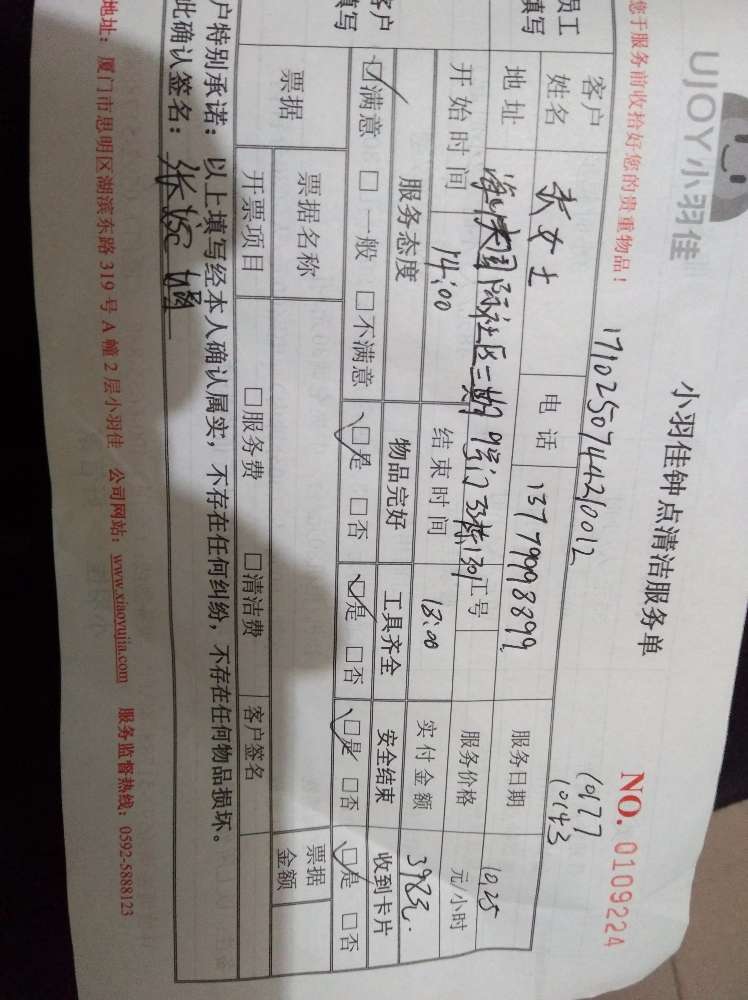 UJOY小羽佳
小羽佳钟点清洁服务单
NO. 0109224
您于服务前收拾好您的贵重物品！
1710250744210012
10177
10143
员工
填写
客户
姓名
女士
电 话
13779998899
服务日期
10.25
地址
国际社区三期
工号
服务价格
元/小时
开始时间
14:00
结束时间
18:00
实付金额
398元.
客户
填写
服务态度
物品完好
工具齐全
安全结束
收到卡片
☑满意 □一般 □不满意
☑是 □否
☑是 □否
☑是 □否
☑是 □否
票据
票据名称
票据
金额
开票项目
□服务费
□清洁费
客户签名
户特别承诺：以上填写经本人确认属实，不存在任何纠纷，不存在任何物品损坏。
此确认签名：
地址：厦门市思明区湖滨东路 319 号 A 幢 2 层小羽佳 公司网站：www.xiaoyujia.com 服务监督热线：0592-5888123